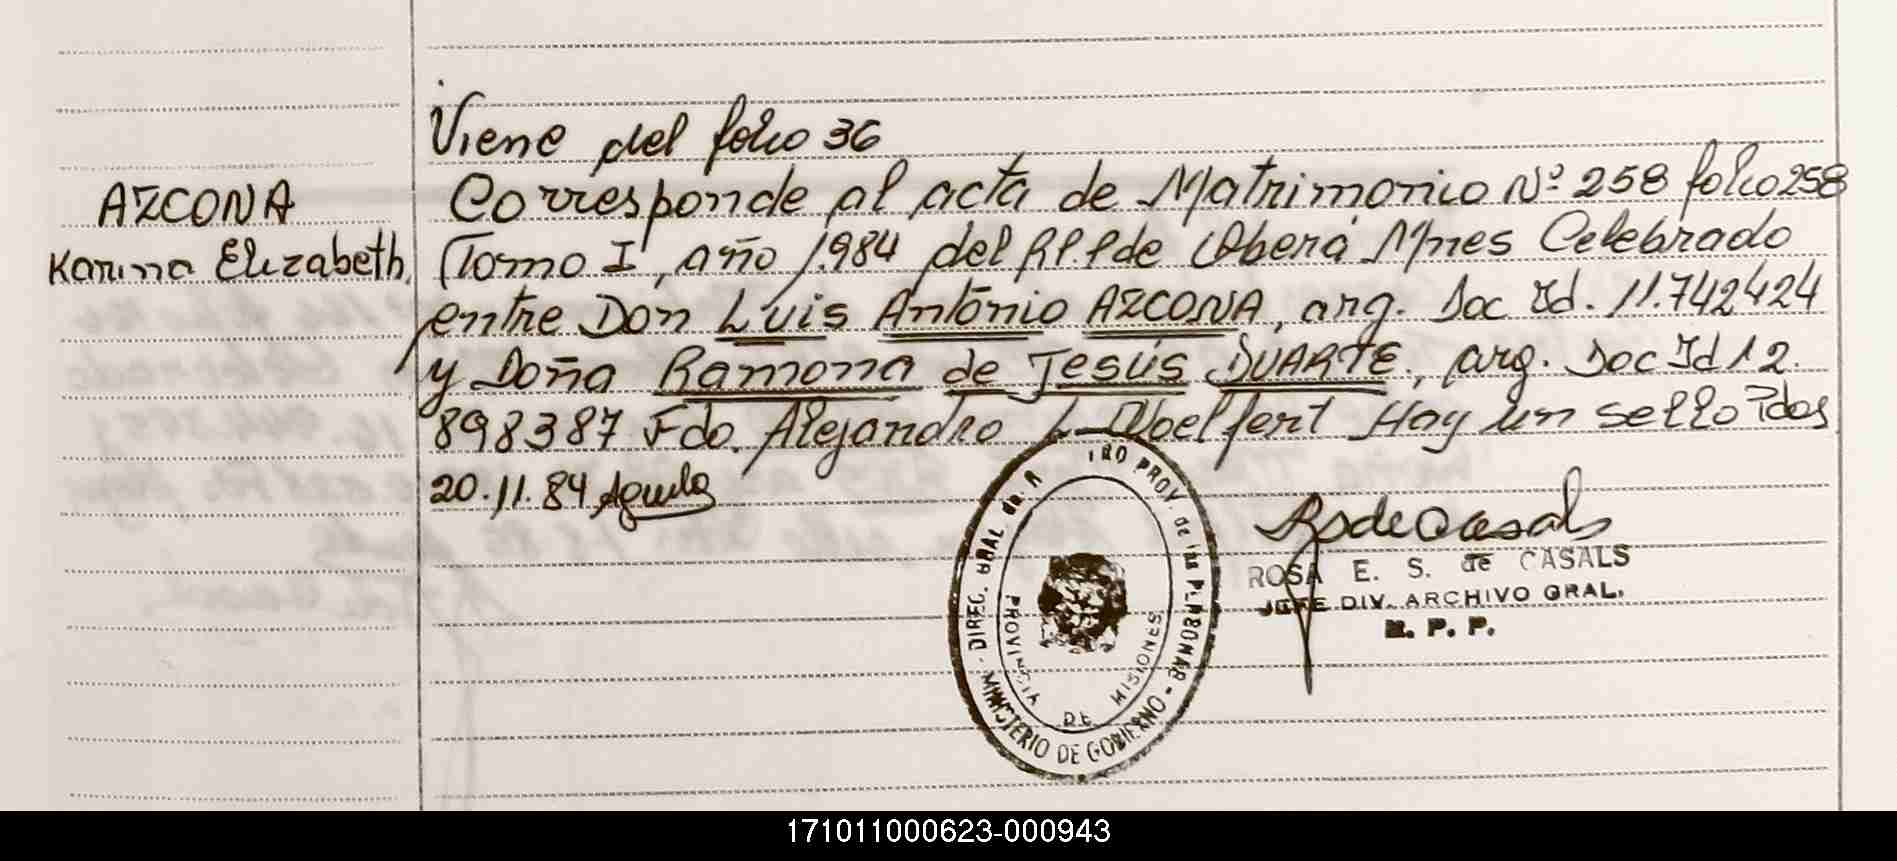 Viene del folio 36
AZCONA
Karina Elizabeth
Corresponde al acta de Matrimonio Nº 258 folio 258
Tomo I, año 1.984 del R.P.P de Oberá Mnes Celebrado
entre Don Luis Antonio AZCONA, arg. Doc Id. 11.742424
y Doña Ramona de Jesús DUARTE, arg. Doc Id 12.
898387 Fdo. Alejandro L. Woelfert Hay un sello Pdas
20.11.84
RsdeCasals
ROSA E. S. de CASALS
JEFE DIV. ARCHIVO GRAL.
R. P. P.
DIREC. GRAL de. R TRO PROV. de las P.
MINISTERIO DE GOBIERNO
PROVINCIA DE MISIONES
171011000623-000943